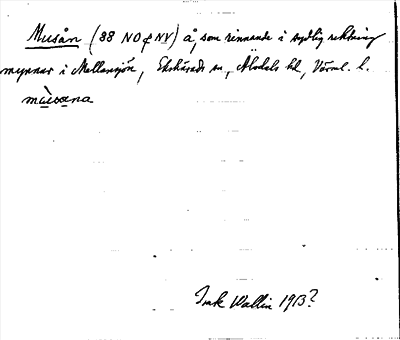 Musån (38 NO & NV) å, som rinnande i sydlig riktning
mynnar i Mellansjön, Ekshärads sn, Älvdals hd, Värml. l.
mùsəna
Ink Wallin 1913?